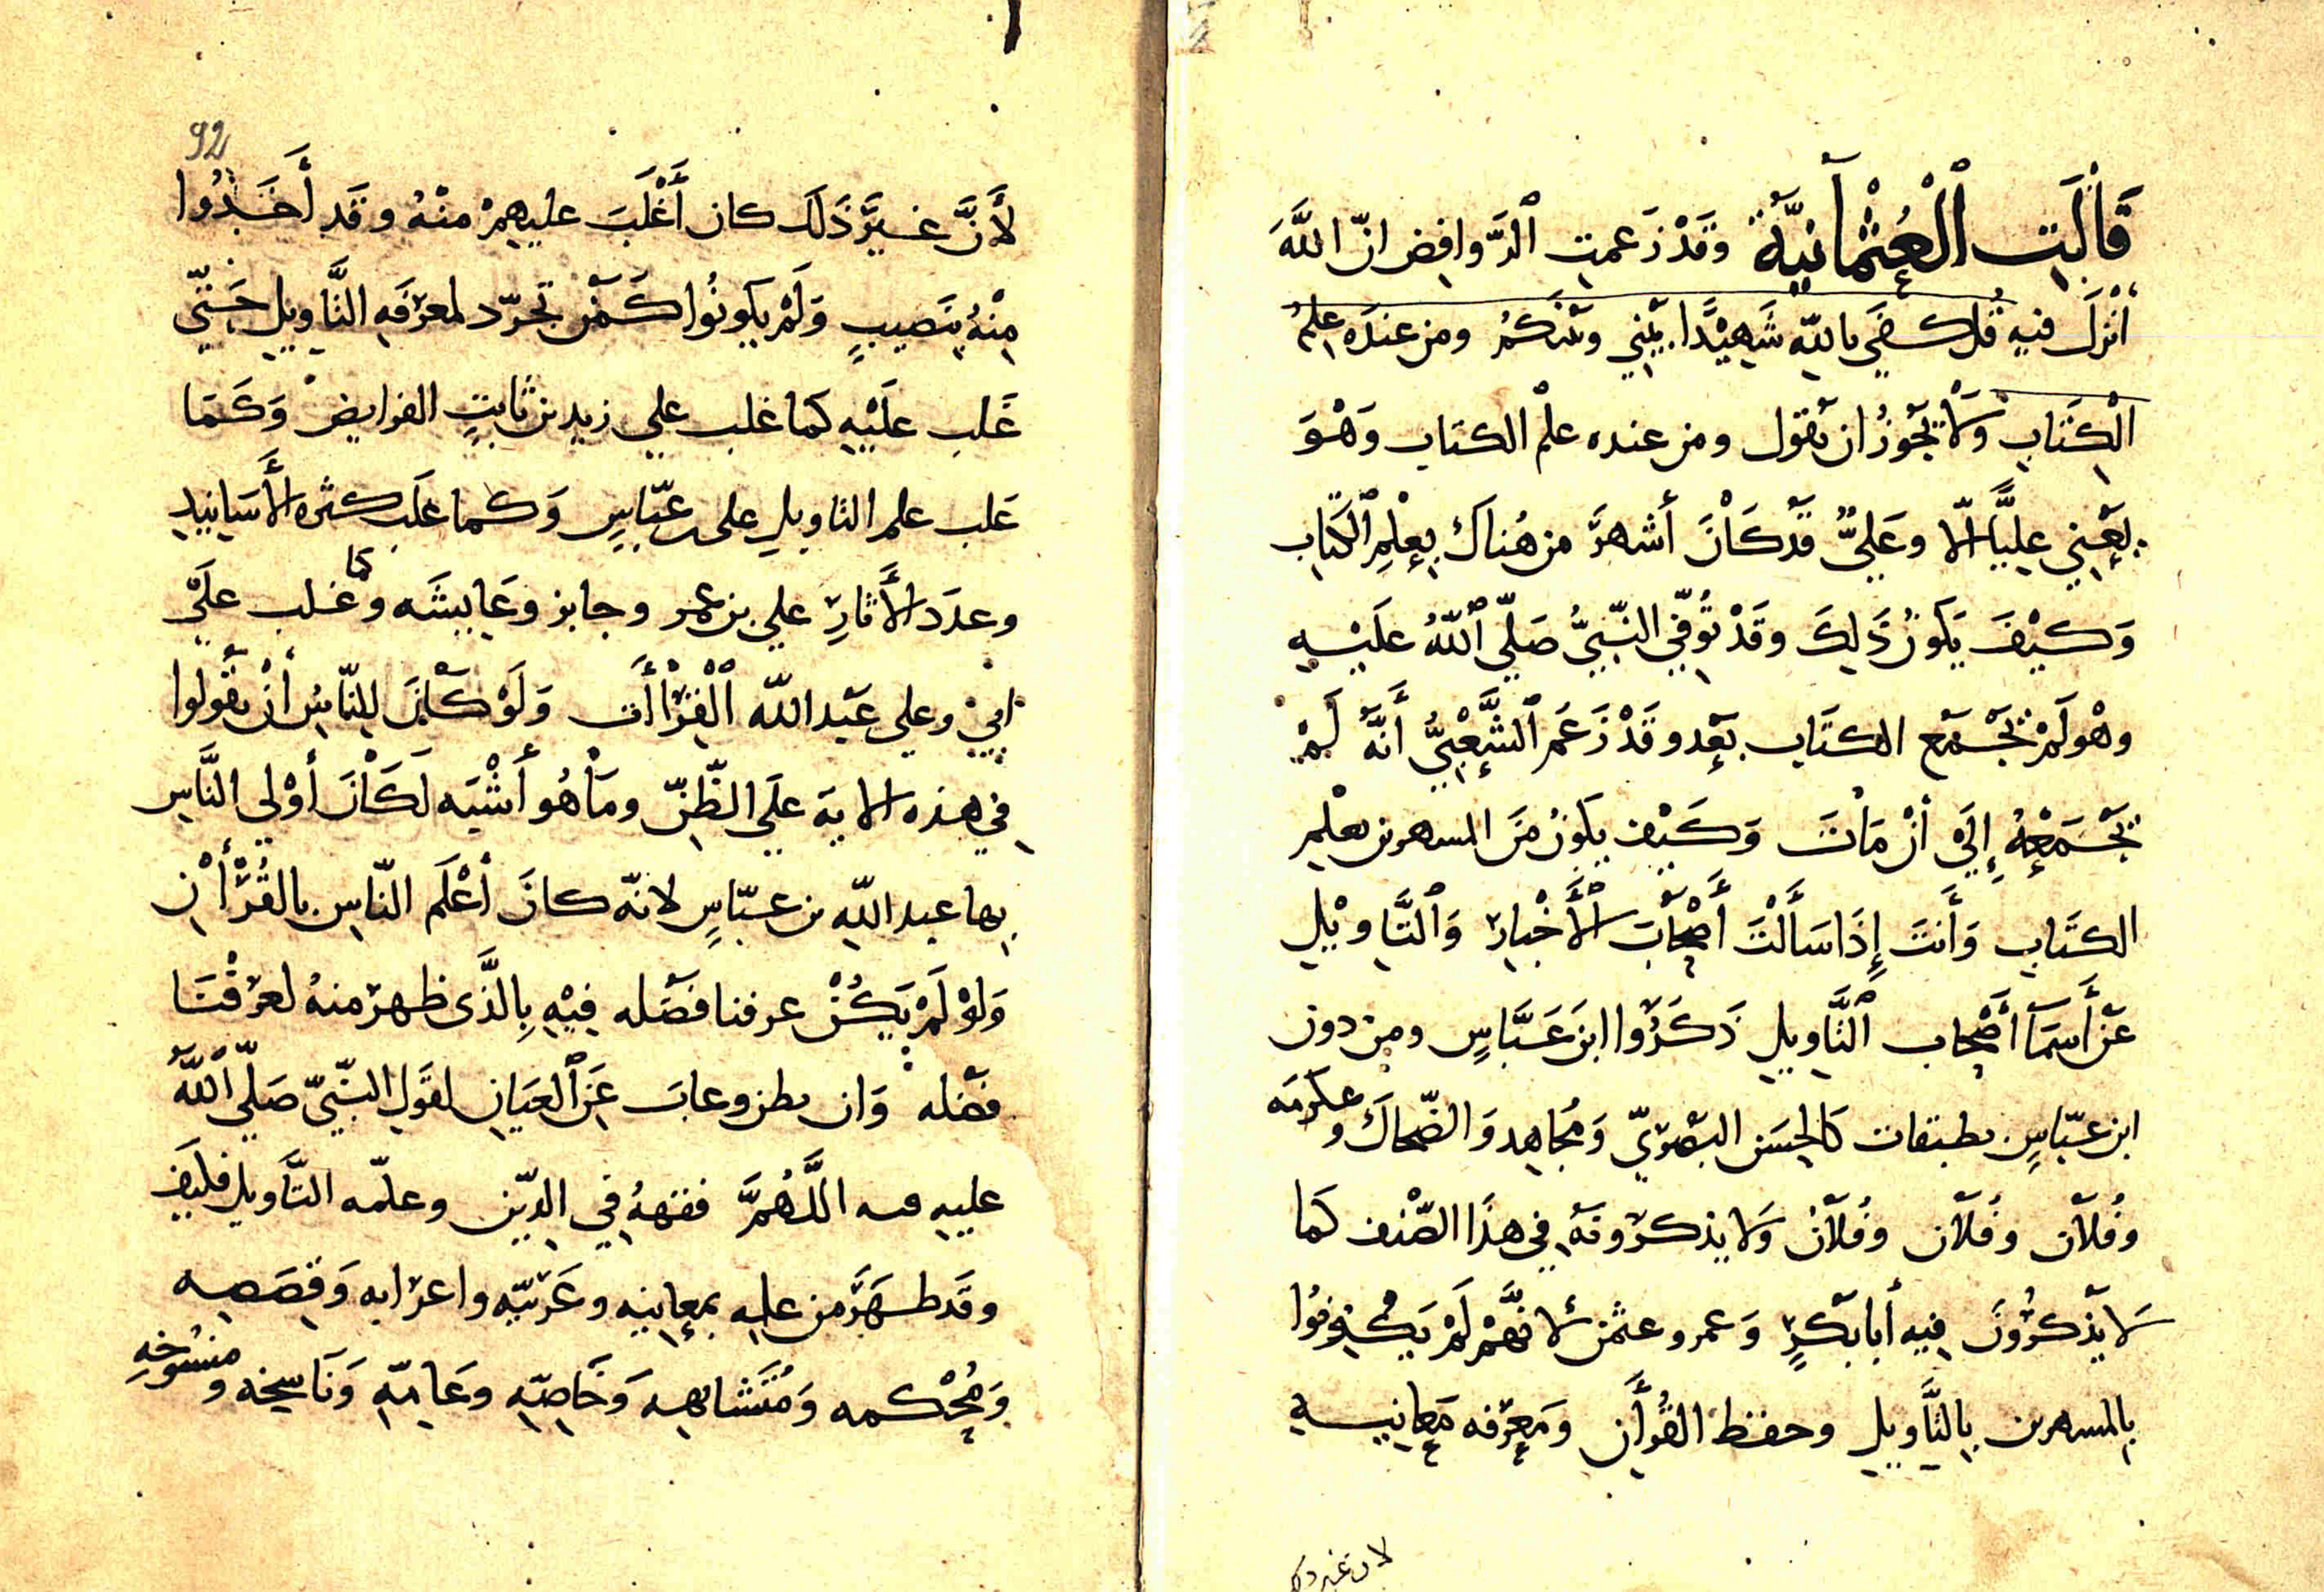 قَالَتِ الْعُثْمَانِيَّةُ وقَدْ زَعمتِ الرَّوافِض انّ اللَّهَ
أَنْزَلَ فيهِ قُل كَفَي باللّهِ شَهِيْدًا بَيْني وبَيْنَكمُ ومن عندَه عِلمُ
الْكِتَابِ وَلَا يَجُوزُ ان يَقول ومن عنده علْم الكتاب وَهْوَ
يَعْنِي عَلِيًّا الّا وعَلِيٌّ قَدْ كَانَ أَشهرَ من هُناكَ بِعِلْمِ الكِتَاب
وَكيْفَ يَكوُنُ ذَلِكَ وقَدْ تُوفّي النّبيُّ صَلّي اللّهُ علَيْهِ
وهْو لَمْ يَجْمَع الكتَاب بَعْد وقَدْ زَعَمَ الشَّعْبِيُّ أَنَّهُ لَمْ
يَجْمَعْهُ إِلَي أنْ مَاتَ وَكَيْف يكوُنُ مَنَ المسهرين بعلْمِ
الكتَابِ وَأَنتَ إِذَا سَأَلْتَ أَصْحَابَ الأَخْبَارِ وَالتَّاوِيْلِ
عَنْ أَسمَآ أَصْحَاب التَّاويلِ ذَكَرُوا ابنَ عَبَّاسٍ ومِن دون
ابن عبّاسٍ بطبقات كَالحَسَن البَصْرِيّ وَمُجَاهِد وَالضّحاكَ وعكرمَه
وفُلَان وفُلَان وفُلَانُ وَلَا يذكرُونَهُ في هذَا الصّنْف كَمَا
لَا يَذْكرُوُنَ فِيهِ أَبَا بَكْرٍ وَعمر وعثمن لأنَّهمْ لَمْ يَكُونُوا
بالمسهرين بِالتَّأويلِ وحفظ القُرأَن ومَعِرْفه مَعَانِيهِ
لان غير ذلك
92
لأَنَّ غيرَ ذَلكَ كان أَغْلَبَ عليهِمْ منْهُ وقَد أَخَذُوا
مِنْهُ بنَصيبٍ وَلَمْ يكونُوا كَمَنْ تجرّد لمعرْفَهِ التَّأويلِ حَتّي
غَلب علَيْهِ كما غلب علي زيد بن ثابتٍ الفرايض وَكَمَا
غَلب علم التاويلِ على عبّاسٍ وَكما غلَب كثره الأَسَانِيد
وعدَد الأَثارِ علي بن عمر وجابر وعَايِشَه وكما غلب علَي
ابيّ وعلي عَبْد اللّه الْقِرْاأَت وَلَوْ كَانَ لِلنّاسُِ أنْ يقُولوا
في هذه الايَة علَي الظّنِّ ومَا هُو أَشْبَه لَكَانَ أَوْلي النَّاسِ
بها عبد اللّه بن عبّاسٍ لانّه كانَ أَعْلَم النّاسِ بالقُرْأَن
وَلوْ لَمْ يَكُنْ عرفنا فَضَله فِيْهِ بِالَّذى ظهرَ منهُ لعرَفْنَا
فضْله وَان بطن وغابَ عَنِ العيَانِ لقَول النّبيّ صَلّي اللَّهُ
عليهِ وسلم اللَّهُمَّ فقههُ فِي الدِّين وعلّمه التَّاويل فكيف
وقَد ظهَرَ من علمه بمعانيه وغَرِيبِه واعرْابه وَقِصَصِه
وَمُحْكمه وَمُتَشَابِهه وَخَاصِّهِ وعَامِّهِ وَنَاسِخه ومنسُوخِهِ